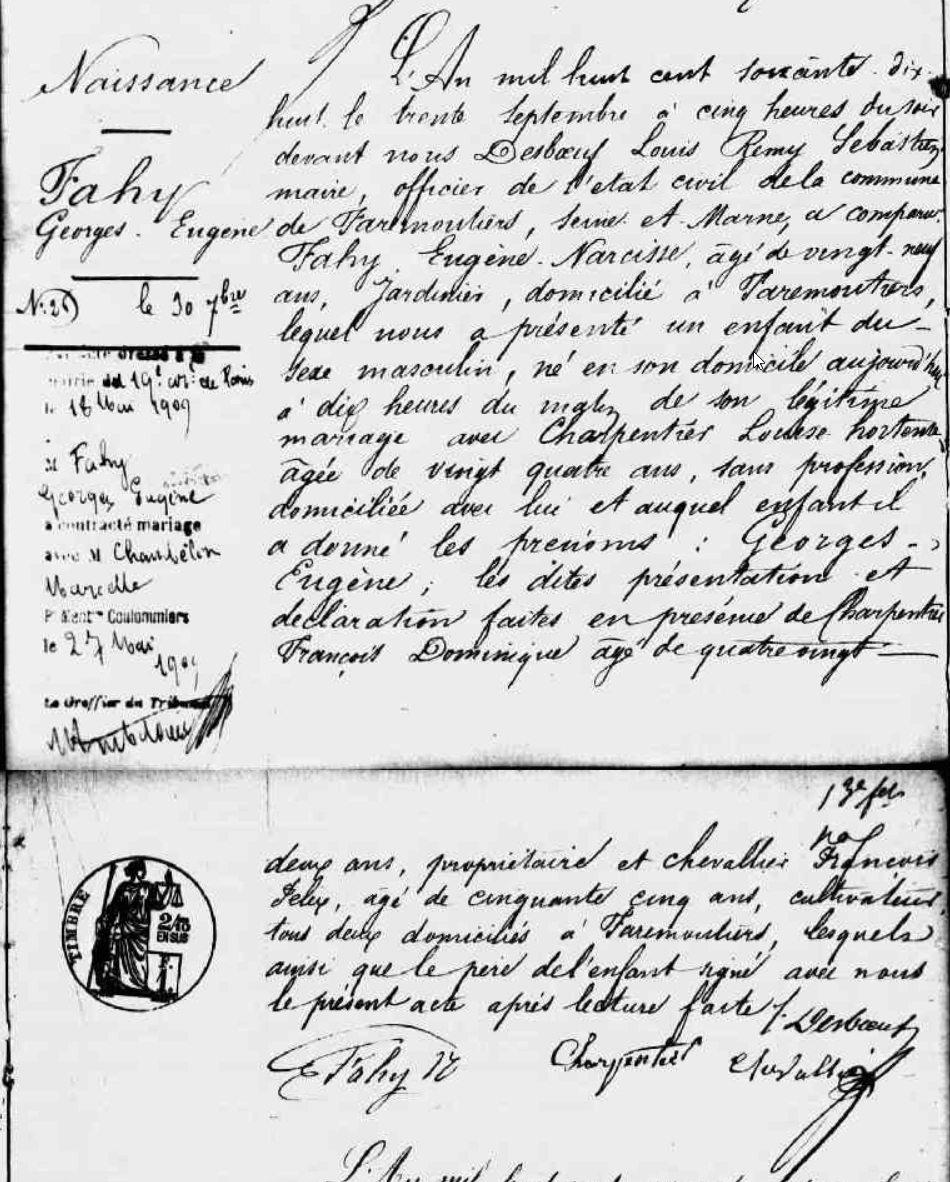 Naissance
Fahy
Georges. Eugène
N. 26 le 30 7bre
mairie du 19e arrt de Paris
le 18 Mai 1909
M Fahy
Georges Eugène
a contracté mariage
avec M Chambelin
Marcelle
Coulommiers
le 27 Mai
1909
Le Greffier du Tribunal
L'An mil huit cent soixante dix
huit le trente Septembre à cinq heures du soir
devant nous Desbœuf Louis Remy Sebastien
maire, officier de l'état civil de la commune
de Faremoutiers, seine et Marne, a comparu
Fahy Eugène Narcisse, âgé de vingt-neuf
ans, Jardinier, domicilié à Faremoutiers,
lequel nous a présenté un enfant du
sexe masculin, né en son domicile aujourd'hui
à dix heures du matin de son légitime
mariage avec Charpentier Louise hortense
âgée de vingt quatre ans, sans profession,
domiciliée avec lui et auquel enfant il
a donné les prenoms : Georges-
Eugène ; les dites présentation et
déclaration faites en présence de Charpentier
François Dominique âgé de quatre vingt
13e fet
deux ans, propriétaire et chevallier François
Felix, agé de cinquante cinq ans, cultivateur
tous deux domiciliés à Faremoutiers, lesquels
ainsi que le père de l'enfant signé avec nous
le présent acte après lecture faite /. Desbœuf
E Fahy Charpentier Chevallier
TIMBRE
2/10
EN SUS
L'An mil